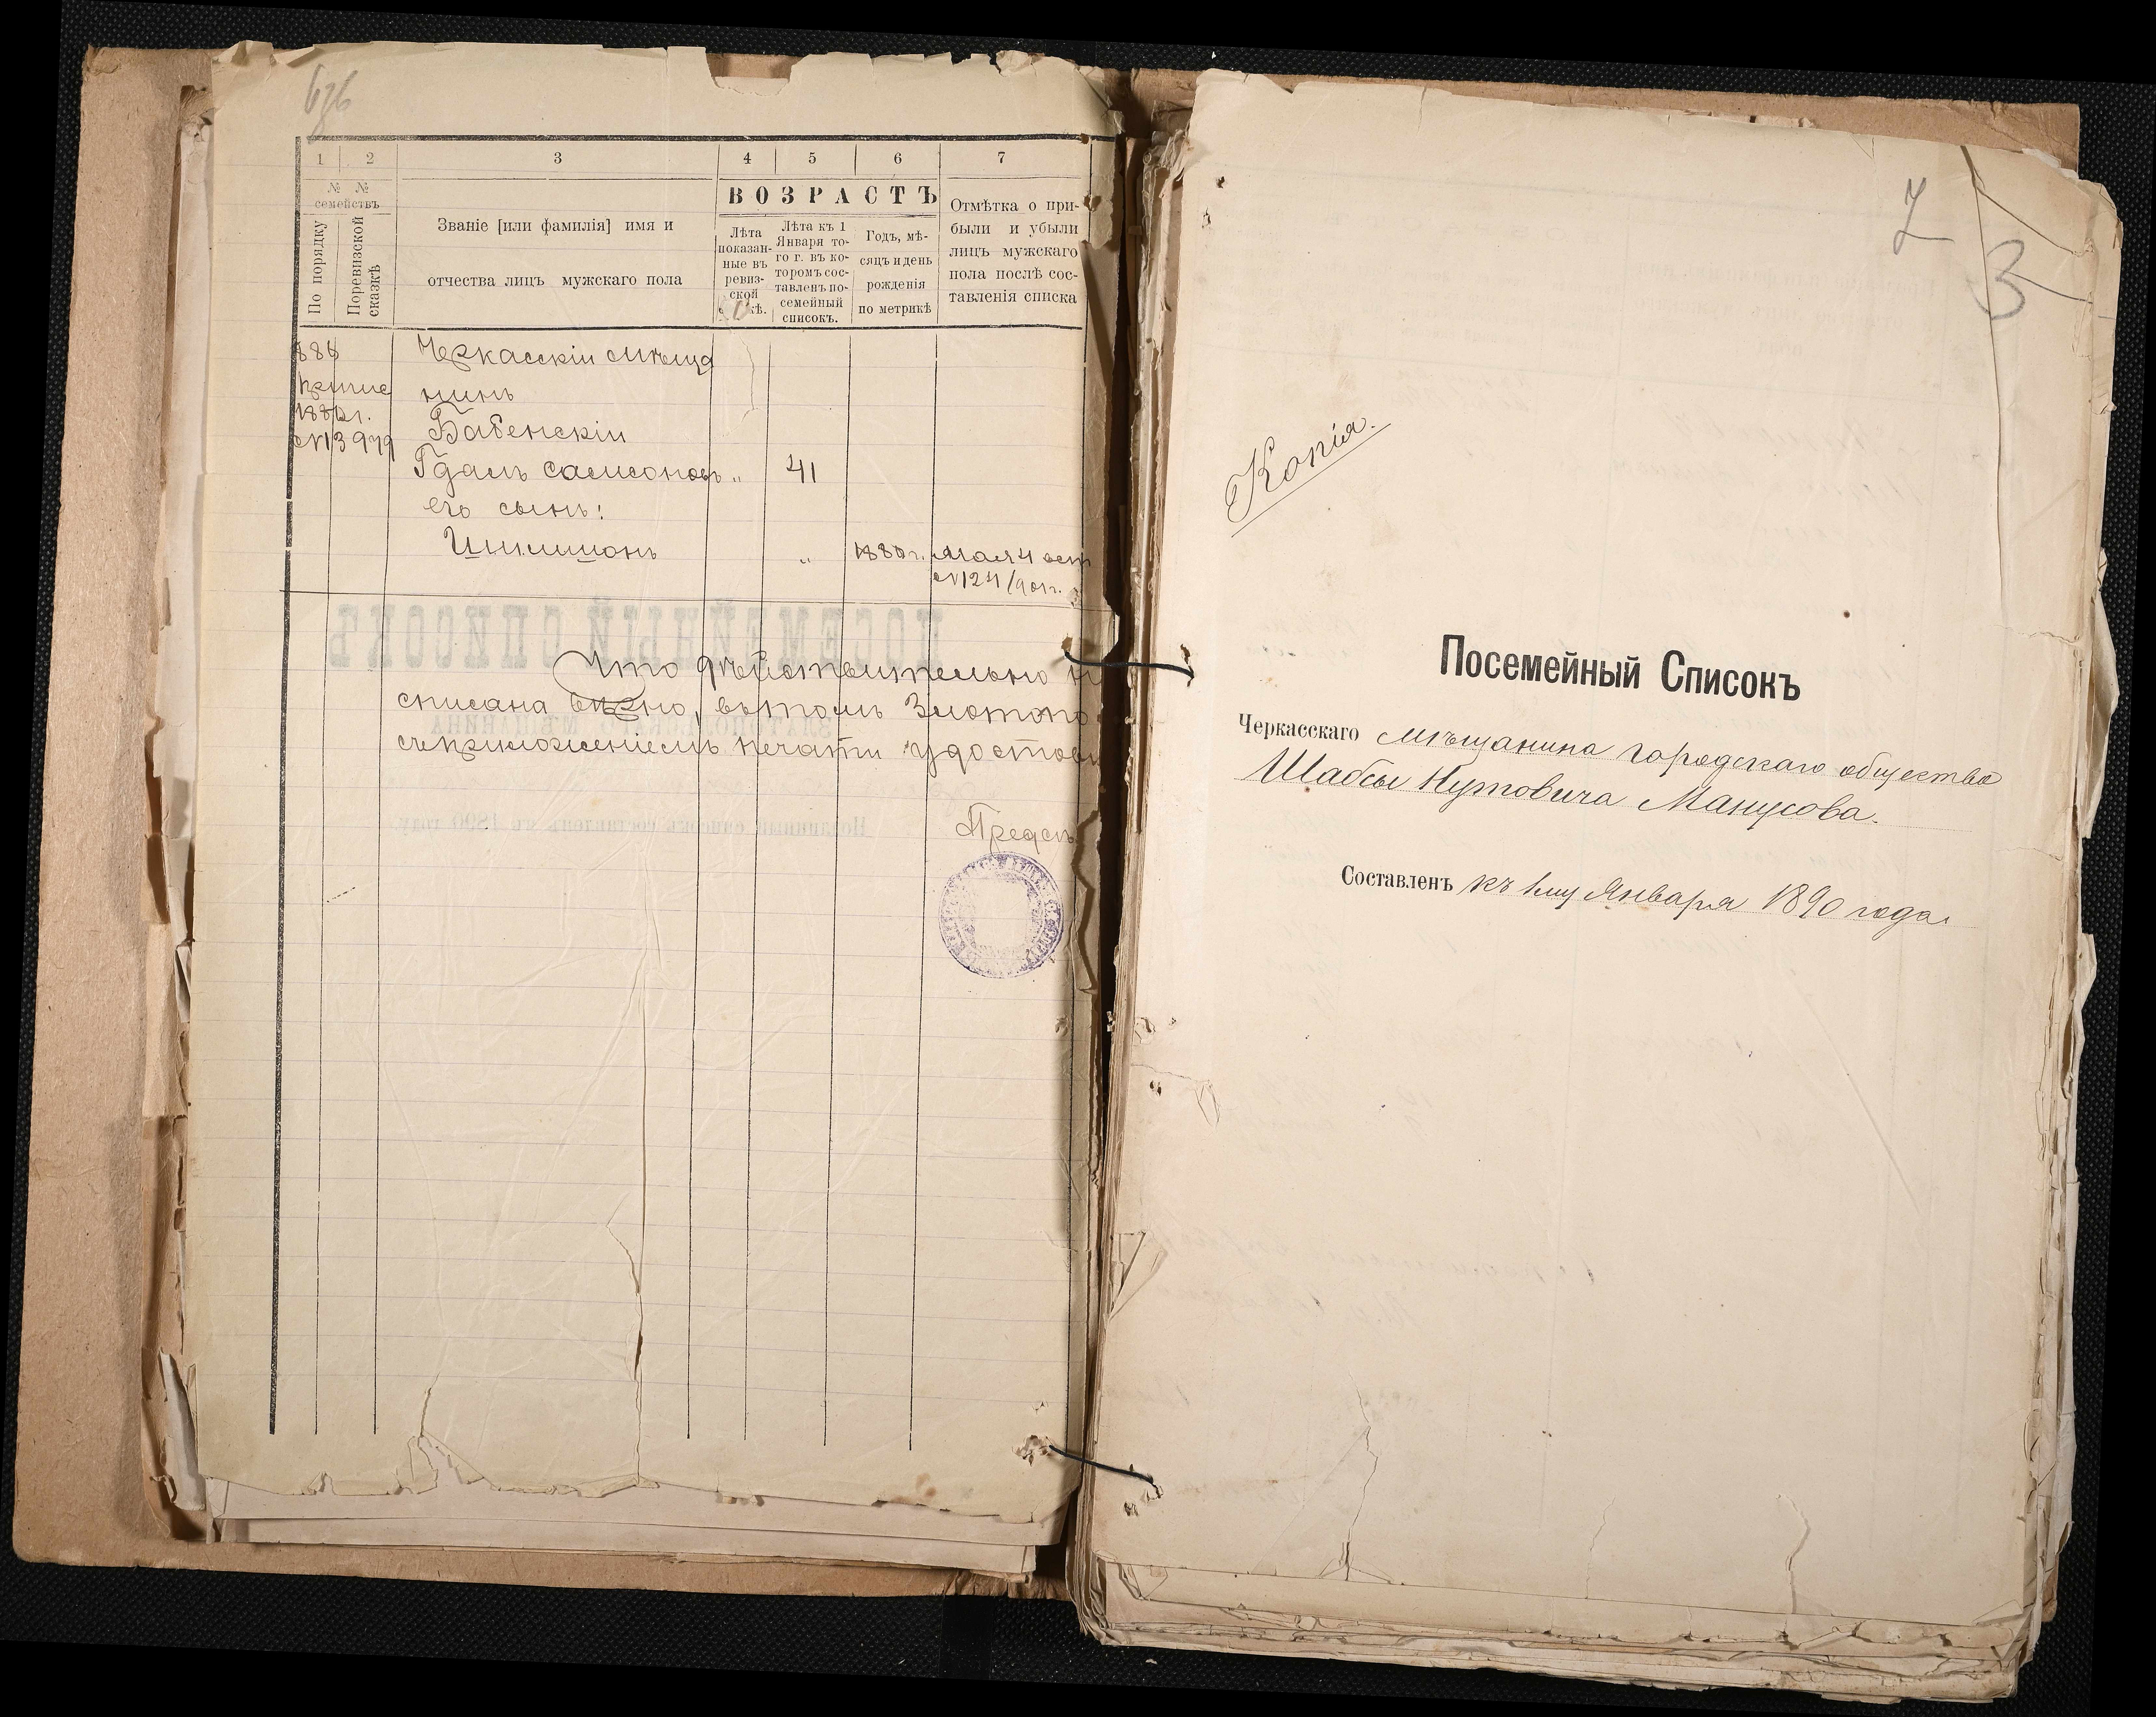 1
2
3
4
5
6
7
№ №
семействъ
По порядку
Поревизской
сказкѣ
Званіе [или фамилія] имя и
отчества лицъ мужскаго пола
ВОЗРАСТЪ
Лѣта
показан-
ные въ
ревиз-
ской
Лѣта къ 1
Января то-
го г. въ ко-
торомъ сос-
тавленъ по-
семейный
списокъ.
Годъ, мѣ-
сяцъ и день
рожденія
по метрикѣ
Отмѣтка о при-
были и убыли
лицъ мужскаго
пола послѣ сос-
тавленія списка
Черкасскій мѣща
нинъ
Бабенскій
Гдаль Самсоновъ „ 41
его сынъ:
Шимшонъ „ 1880 г.
№124/901г.
Что дѣйствительно
списана вѣрно, въ томъ Златопо
съ приложеніемъ печати удостов
Предсѣ
7
3
Копія.
Посемейный Списокъ
Черкасскаго мѣщанина городскаго общества
Шабсы Нутовича Манусова.
Составленъ къ 1му Января 1890 года.